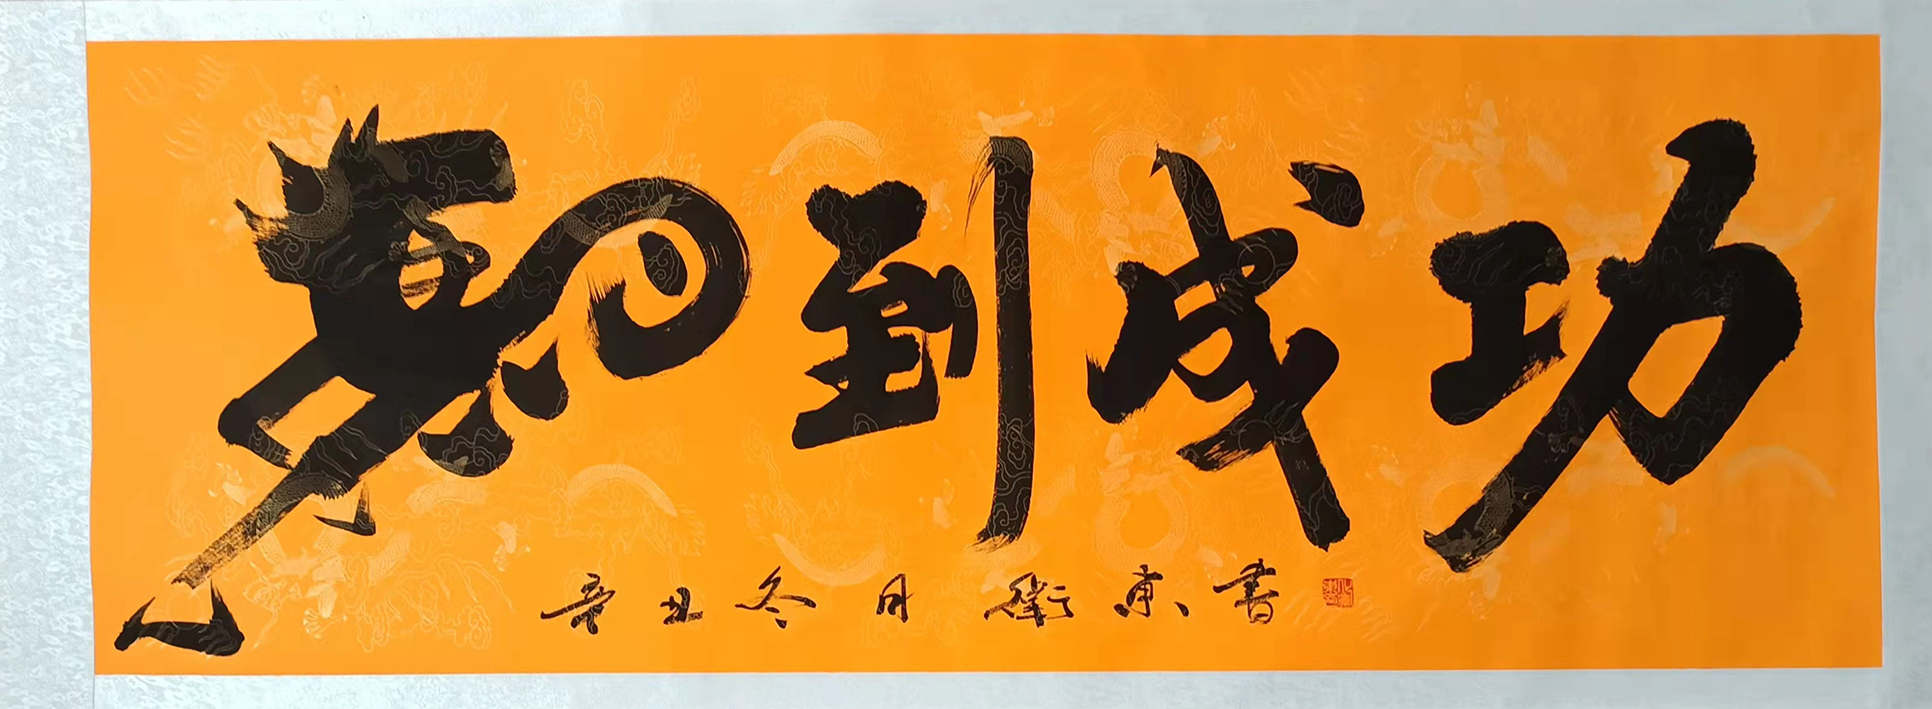 馬到成功
辛丑冬月衛東書